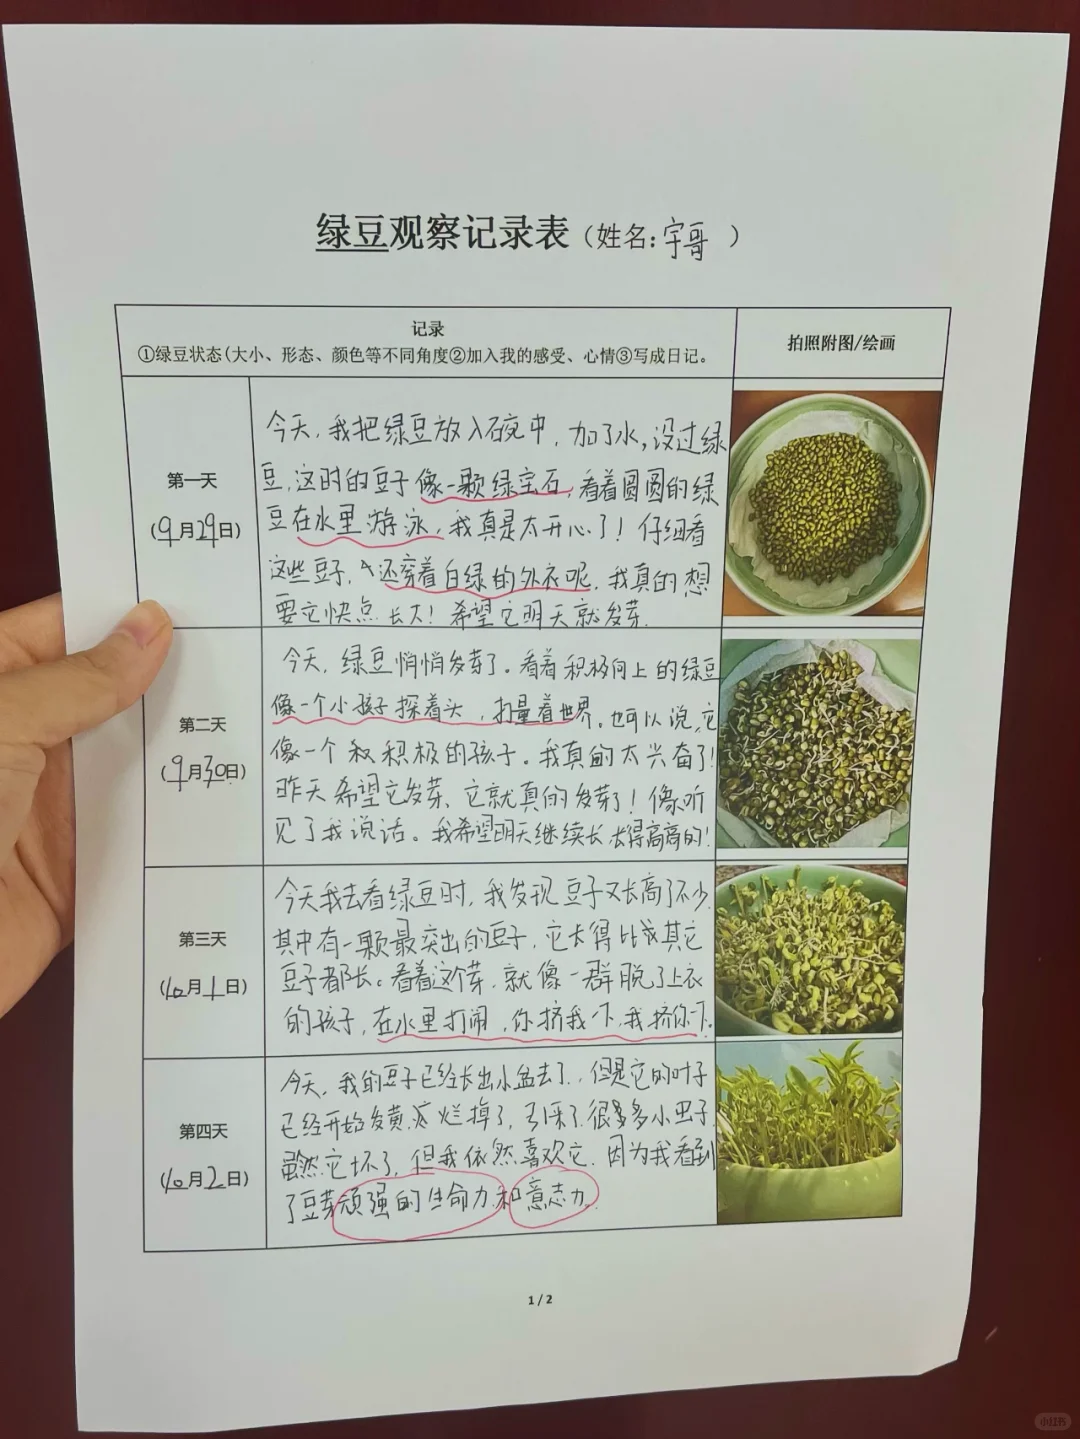 绿豆观察记录表（姓名:宇哥 ）
记录
①绿豆状态(大小、形态、颜色等不同角度②加入我的感受、心情③写成日记。
拍照附图/绘画
第一天
(9月29日)
今天,我把绿豆放入碗中,加了水,没过绿
豆,这时的豆子像一颗绿宝石,看着圆圆的绿
豆在水里游泳,我真是太开心了！仔细看
这些豆子,还穿着白绿的外衣呢,我真的想
要它快点长大！希望它明天就发芽.
第二天
(9月30日)
今天,绿豆悄悄发芽了。看着积极向上的绿豆
像一个小孩子探着头,打量着世界。也可以说,它
像一个积极的孩子。我真的太兴奋了！
昨天希望它发芽、它就真的发芽了！像听
见了我说话。我希望明天继续长长得高高的！
第三天
(10月1日)
今天我去看绿豆时,我发现豆子又长高了不少.
其中有一颗最突出的豆子,它长得比其它
豆子都长。看着这个芽,就像一群脱了上衣
的孩子,在水里打闹,你挤我一下,我挤你一下.
第四天
(10月2日)
今天,我的豆子已经长出小盆去了.,但是它的叶子
已经开始发黄,烂掉了,引来了很多多小虫子.
虽然它坏了,但我依然喜欢它.因为我看到
了豆芽顽强的生命力和意志力.
1 / 2
小红书